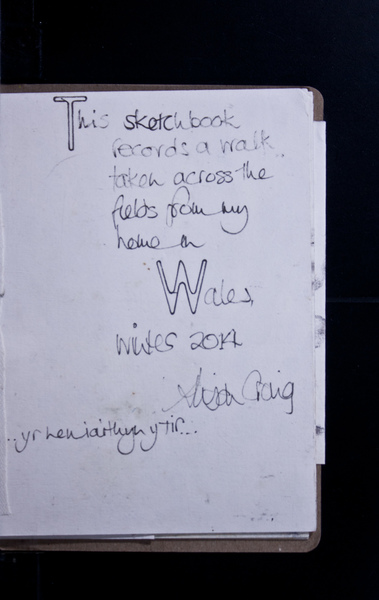 This sketchbook
records a walk
taken across the
fields from my
home in
Wales,
winter 2014
Alison Craig
..yr hen iaith yn y tir...